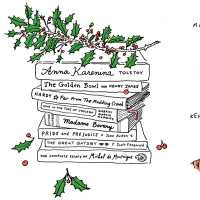 MA
Anna Karenina TOLSTOY
The Golden Bowl HENRY JAMES
HARDY Far From The Madding Crowd
LOVE IN THE TIME OF CHOLERA GABRIEL GARCIA MARQUEZ
Madame Bovary
PRIDE and PREJUDICE Jane Austen
THE GREAT GATSBY F. Scott Fitzgerald
THE COMPLETE ESSAYS of Michel de Montaigne
KE